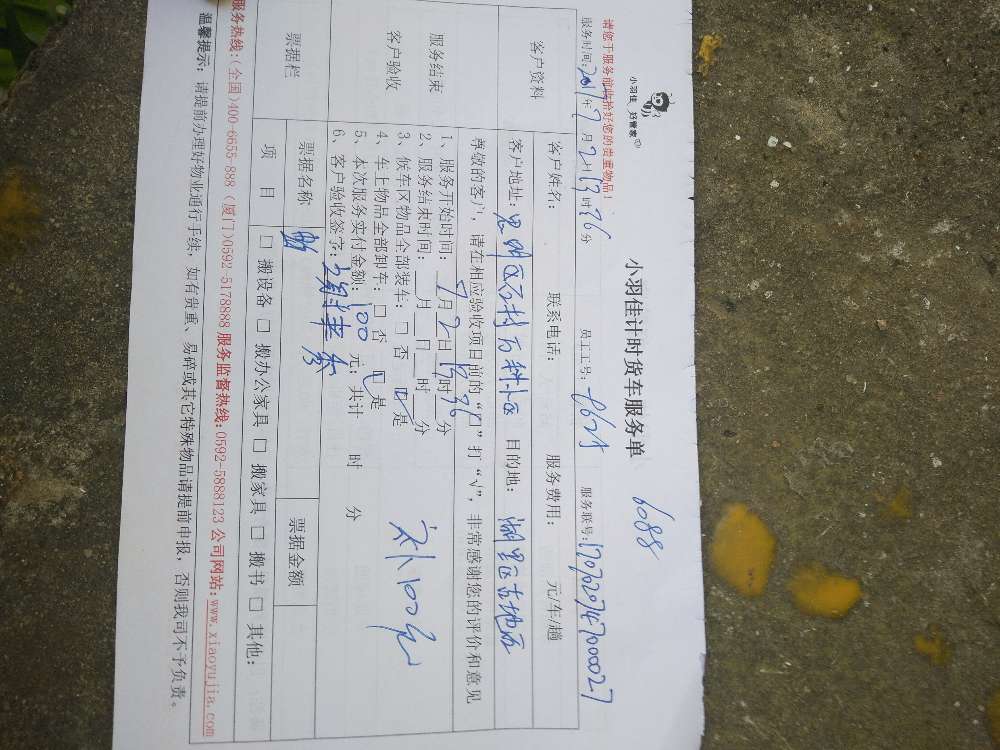 小羽佳 好管家
小羽佳计时货车服务单
6088
请您于服务前收拾好您的贵重物品!
服务时间: 年7月2日13时36分 员工工号: 服务联号:1707020747000027
客户资料
客户姓名: 联系电话: 服务费用: 元/车/趟
客户地址:思明区石村万科小区 目的地:湖里区吉地石
服务结束
客户验收
尊敬的客户,请在相应验收项目前的“口”打“√”,非常感谢您的评价和意见
1、服务开始时间:7月2日 时36分
2、服务结束时间: 月 日 时 分
3、候车区物品全部装车:□ 否 ☑是
4、车上物品全部卸车:□ 否 ☑是
5、本次服务实付金额:100元;共计 时 分
6、客户验收签字:
补100元
票据栏
票据名称 票据金额
项 目 □ 搬设备 □ 搬办公家具 □ 搬家具 □ 搬书 □ 其他:
服务热线:(全国)400-6655-888 (厦门)0592-5178888 服务监督热线:0592-5888123 公司网站:www.xiaoyujia.com
温馨提示: 请提前办理好物业通行手续,如有贵重、易碎或其它特殊物品请提前申报,否则我司不予负责。